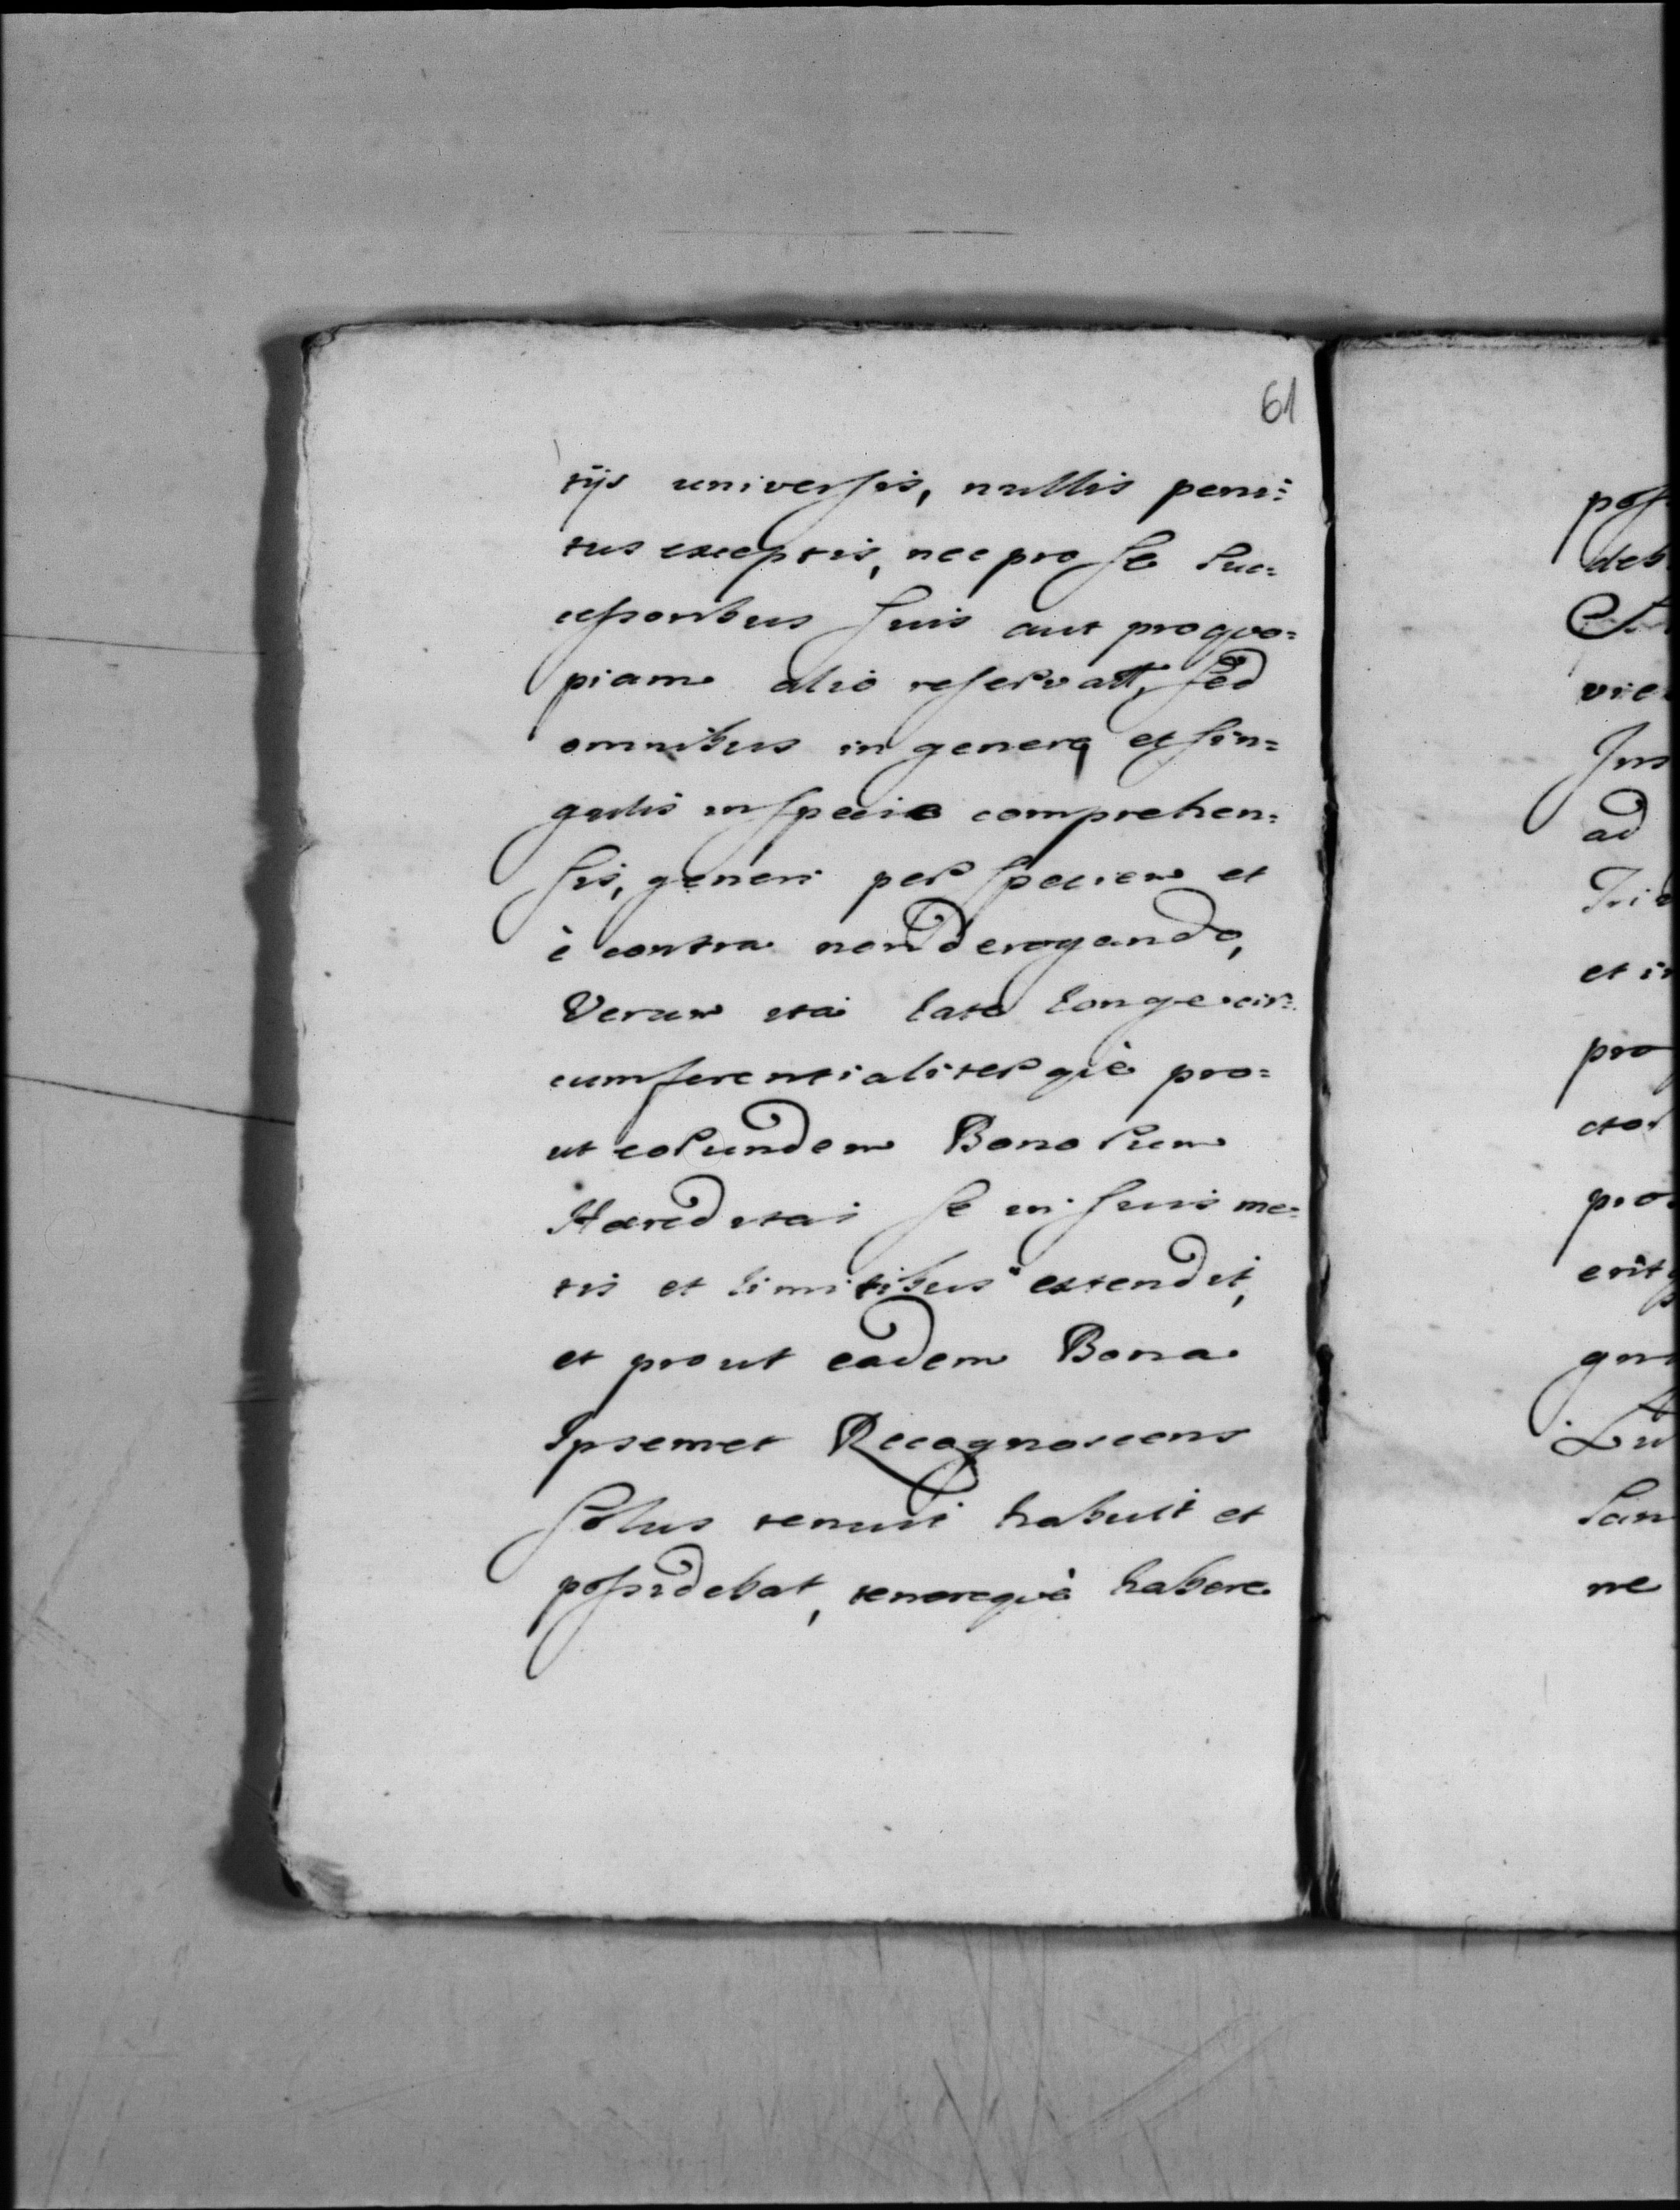 61
tijs universis, nullis peni=
tus exceptis, nec pro se suc=
cessoribus suis aut pro quo=
piam alio reservatt, sed
omnibus in genere et sin=
gulis in specie comprehen=
sis, generi per speciem et
è contra non derogando,
Verum ita late longe cir=
cumferentialiterquè pro=
ut eorundem Bonorum
Hæreditas se in suis me=
tis et limitibus extendit,
et prout eadem Bona
Ipsemet Recognoscens
solus tenuit habuit et
possidebat, tenerequè habere
pos
deb
vie
Jus
ad
Tri
et in
pro
ctor
pro
erit
gn
Lu
San
ne